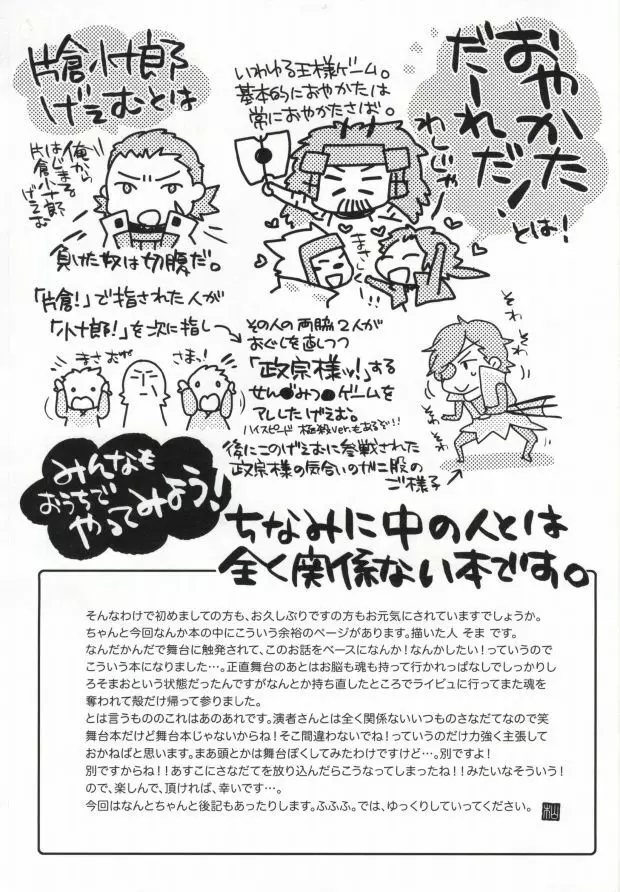 おやかた
だーれだ！
とは！
わしじゃー
いわゆる王様ゲーム。
基本的におやかたは
常におやかたさば。
まさむ
くーん!!
片倉小十郎
げえむとは
俺から
はじまる
片倉小十郎
げえむ
負けた奴は切腹だ。
「片倉！」で指された人が
「小十郎！」を次に指し
その人の両脇2人が
おぐしを直しつつ
「政宗様ッ！」する
せん●みつ●ゲームを
アレしたげえむ。
ハイスピード 極殺ver.もあるぞ!!
まさむねさまっ！
そわ
そわ
そわ
そわ
後にこのげえむに参戦された
政宗様の気合いのガニ股の
ご様子
みんなも
おうちで
やってみよう！
ちなみに中の人とは
全く関係ない本です。
そんなわけで初めましての方も、お久しぶりですの方もお元気にされていますでしょうか。
ちゃんと今回なんか本の中にこういう余裕のページがあります。描いた人 そま です。
なんだかんだで舞台に触発されて、このお話をベースになんか！なんかしたい！っていうので
こういう本になりました…。正直舞台のあとはお脳も魂も持って行かれっぱなしでしっかりし
ろそまおという状態だったんですがなんとか持ち直したところでライビュに行ってまた魂を
奪われて殻だけ帰って参りました。
とは言うもののこれはあのあれです。演者さんとは全く関係ないいつものさなだてなので笑
舞台本だけど舞台本じゃないからね！そこ間違わないでね！っていうのだけ力強く主張して
おかねばと思います。まあ頭とかは舞台ぽくしてみたわけですけど…。別ですよ！
別ですからね！！あすこにさなだてを放り込んだらこうなってしまったね！！みたいなそういう！
ので、楽しんで、頂ければ、幸いです…。
今回はなんとちゃんと後記もあったりします。ふふふ。では、ゆっくりしていってください。